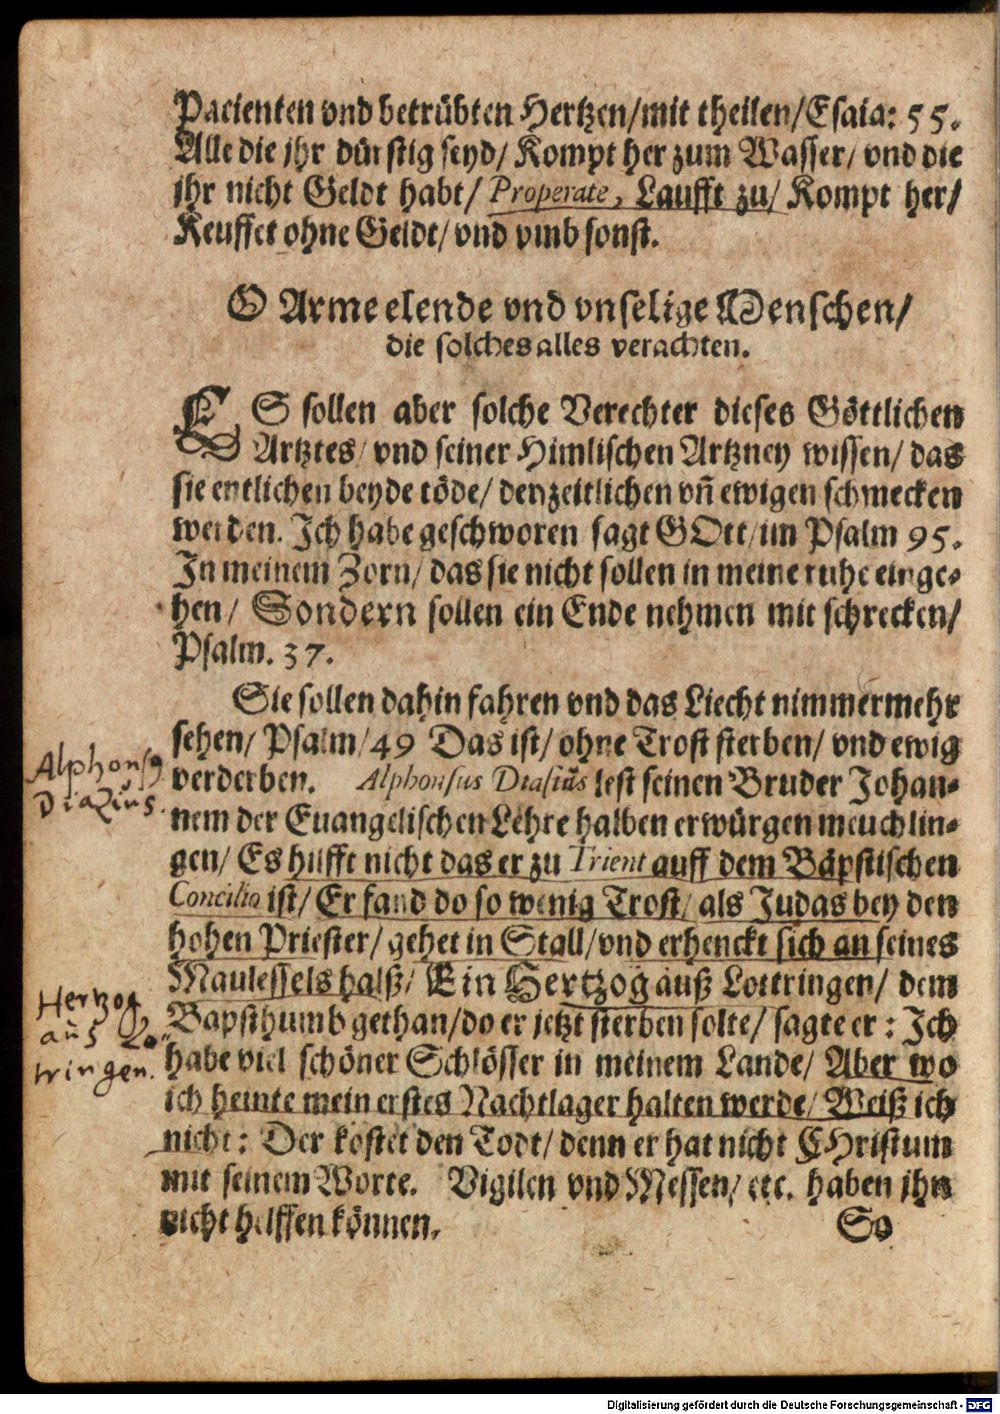 Pacienten vnd betrübten Hertzen/mit theilen/Esaia: 55.
Alle die jhr dürstig seyd/ Kompt her zum Wasser/ vnd die
jhr nicht Geldt habt/ Properate, Laufft zu/ Kompt her/
Keuffet ohne Geldt/ vnd vmb sonst.
O Arme elende vnd vnselige Menschen/
die solches alles verachten.
ES sollen aber solche Verechter dieses Göttlichen
Artztes/ vnd seiner Himlischen Artzney wissen/ das
sie entlichen beyde töde/ den zeitlichen vñ ewigen schmecken
werden. Ich habe geschworen sagt GOtt/ im Psalm 95.
In meinem Zorn/ das sie nicht sollen in meine ruhe einge-
hen/ Sondern sollen ein Ende nehmen mit schrecken/
Psalm. 37.
Sie sollen dahin fahren vnd das Liecht nimmermehr
sehen/ Psalm/49 Das ist/ ohne Trost sterben/ vnd ewig
verderben. Alphonsus Diasius lest seinen Bruder Johan-
nem der Euangelischen Lehre halben erwürgen meuchlin-
gen/ Es hilfft nicht das er zu Trient auff dem Bäpstischen
Concilio ist/ Er fand do so wenig Trost/ als Judas bey den
hohen Priester/ gehet in Stall/ vnd erhenckt sich an seines
Maulessels halß/ Ein Hertzog auß Lottringen/ dem
Bapsthumb gethan/ do er jetzt sterben solte/ sagte er: Ich
habe viel schöner Schlösser in meinem Lande/ Aber wo
ich heinte mein erstes Nachtlager halten werde/ Weiß ich
nicht: Der kostet den Todt/ denn er hat nicht CHristum
mit seinem Worte. Vigilen vnd Messen/ etc. haben jhn
nicht helffen können.
So
Alphonsꝰ
Diazius.
Hertzog
aus Lo-
tringen.
Digitalisierung gefördert durch die Deutsche Forschungsgemeinschaft - DFG